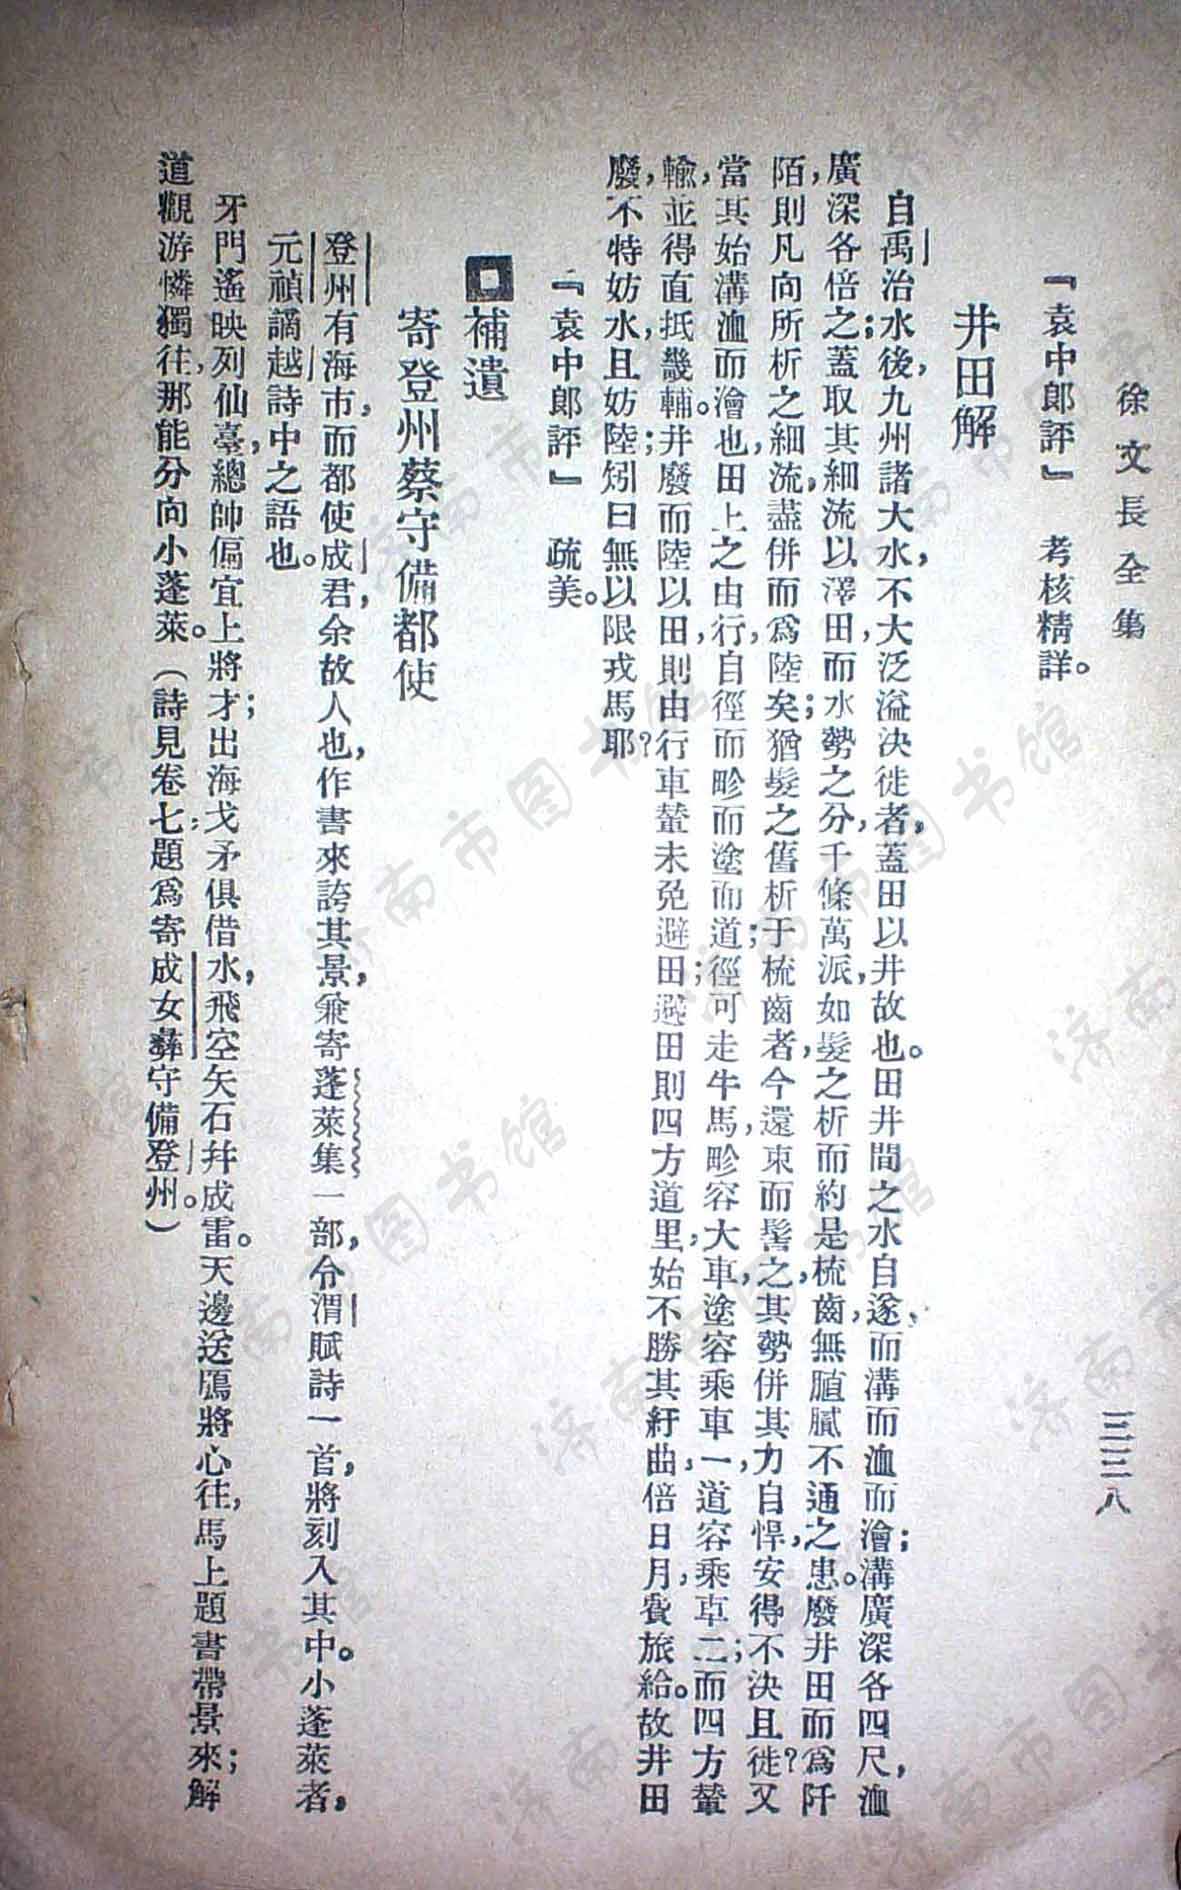 徐文長全集
三三八
『袁中郎評』　考核精詳。
井田解
自禹治水後，九州諸大水，不大泛溢決徙者，蓋田以井故也。田井間之水自遂，而溝而洫而澮；溝廣深各四尺，洫
廣深各倍之；蓋取其細流以澤田，而水勢之分，千條萬派，如髮之析而約是梳齒，無脜膩不通之患。廢井田而爲阡
陌，則凡向所析之細流，盡併而爲陸矣；猶髮之舊析于梳齒者，今還束而髻之，其勢併，其力自悍，安得不決且徙？又
當其始溝洫而澮也，田上之由行，自徑而畛而塗而道；徑可走牛馬，畛容大車，塗容乘車一，道容乘車二；而四方輦
輸，並得直抵畿輔。井廢而陸以田，則由行車輦未免避田；避田則四方道里，始不勝其紆曲，倍日月，費旅給。故井田
廢，不特妨水，且妨陸；矧曰無以限戎馬耶？
『袁中郎評』　疏美。
補遺
寄登州蔡守備都使
登州有海市，而都使成君，余故人也，作書來誇其景，兼寄蓬萊集一部，令渭賦詩一首，將刻入其中。小蓬萊者，
元稹謫越詩中之語也。
牙門遙映列仙臺，總帥偏宜上將才；出海戈矛俱借水，飛空矢石幷成雷。天邊送鴈將心往，馬上題書帶景來；解
道觀游憐獨往，那能分向小蓬萊。（詩見卷七；題爲寄成女彝守備登州。）